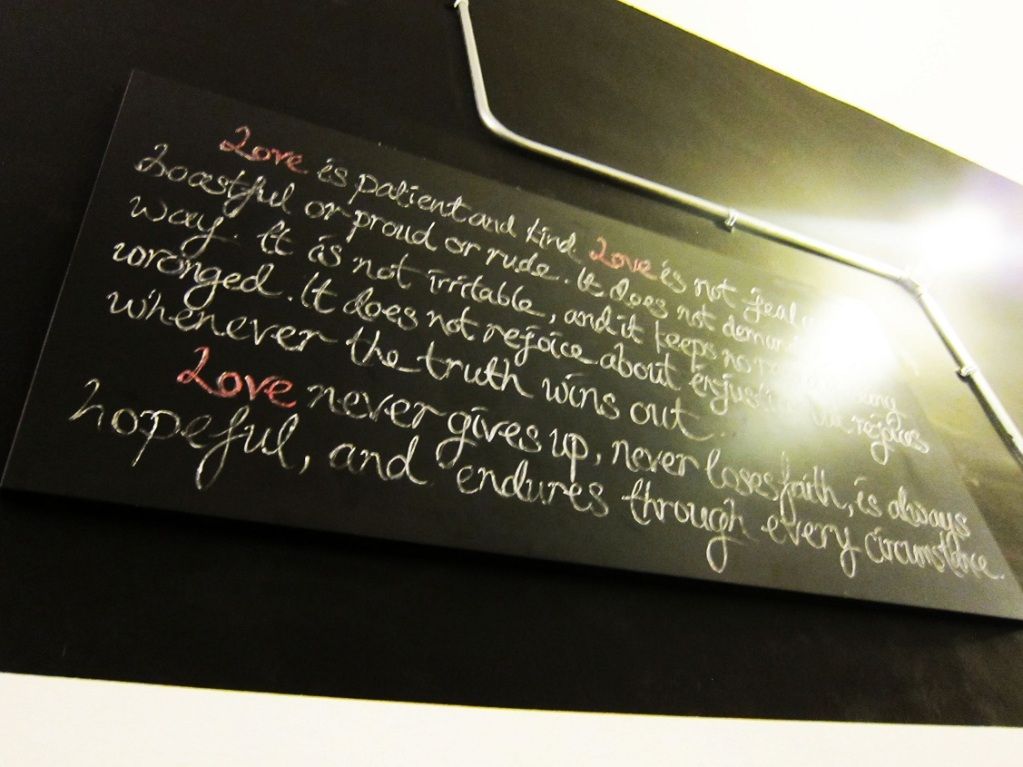 Love is patient and kind Love is not
boastful or proud or rude. It does not
way. It is not irritable, and it keeps no
wronged. It does not rejoice about rejoices
whenever the truth wins out.
Love never gives up, never loses faith, is always
hopeful, and endures through every circumstance.